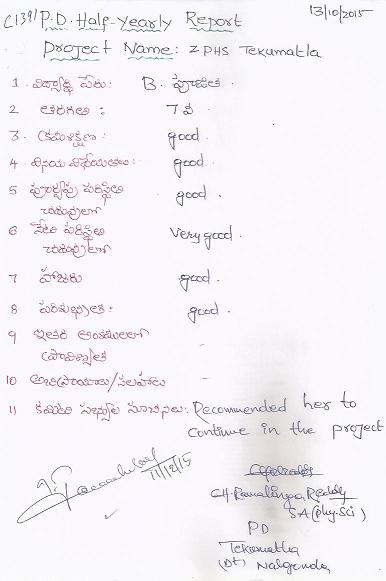 C1391 P.D. Half-Yearly Report
13/10/2015
Project Name: ZPHS Tekumatla
1 విద్యార్థి పేరు: B. పూజిత.
2 తరగతి : 7 వ
3. క్రమశిక్షణ: good.
4 వినయ విధేయతలు: good.
5 పూర్వపు పరిస్థితి చదువులో good.
6 నేటి పరిస్థితి చదువులో Very good.
7 హాజరు good.
8 పరిశుభ్రత: good.
9 ఇతర అంశములలో ప్రావిణ్యత
10 అభిప్రాయాలు/సలహాలు
11 కమిటి సభ్యుల సూచనలు: Recommended her to
continue in the project
11/12/15
CH. Ramalinga Reddy
SA (phy.Sci)
PD
Tekumatla
(Dt) Nalgonda